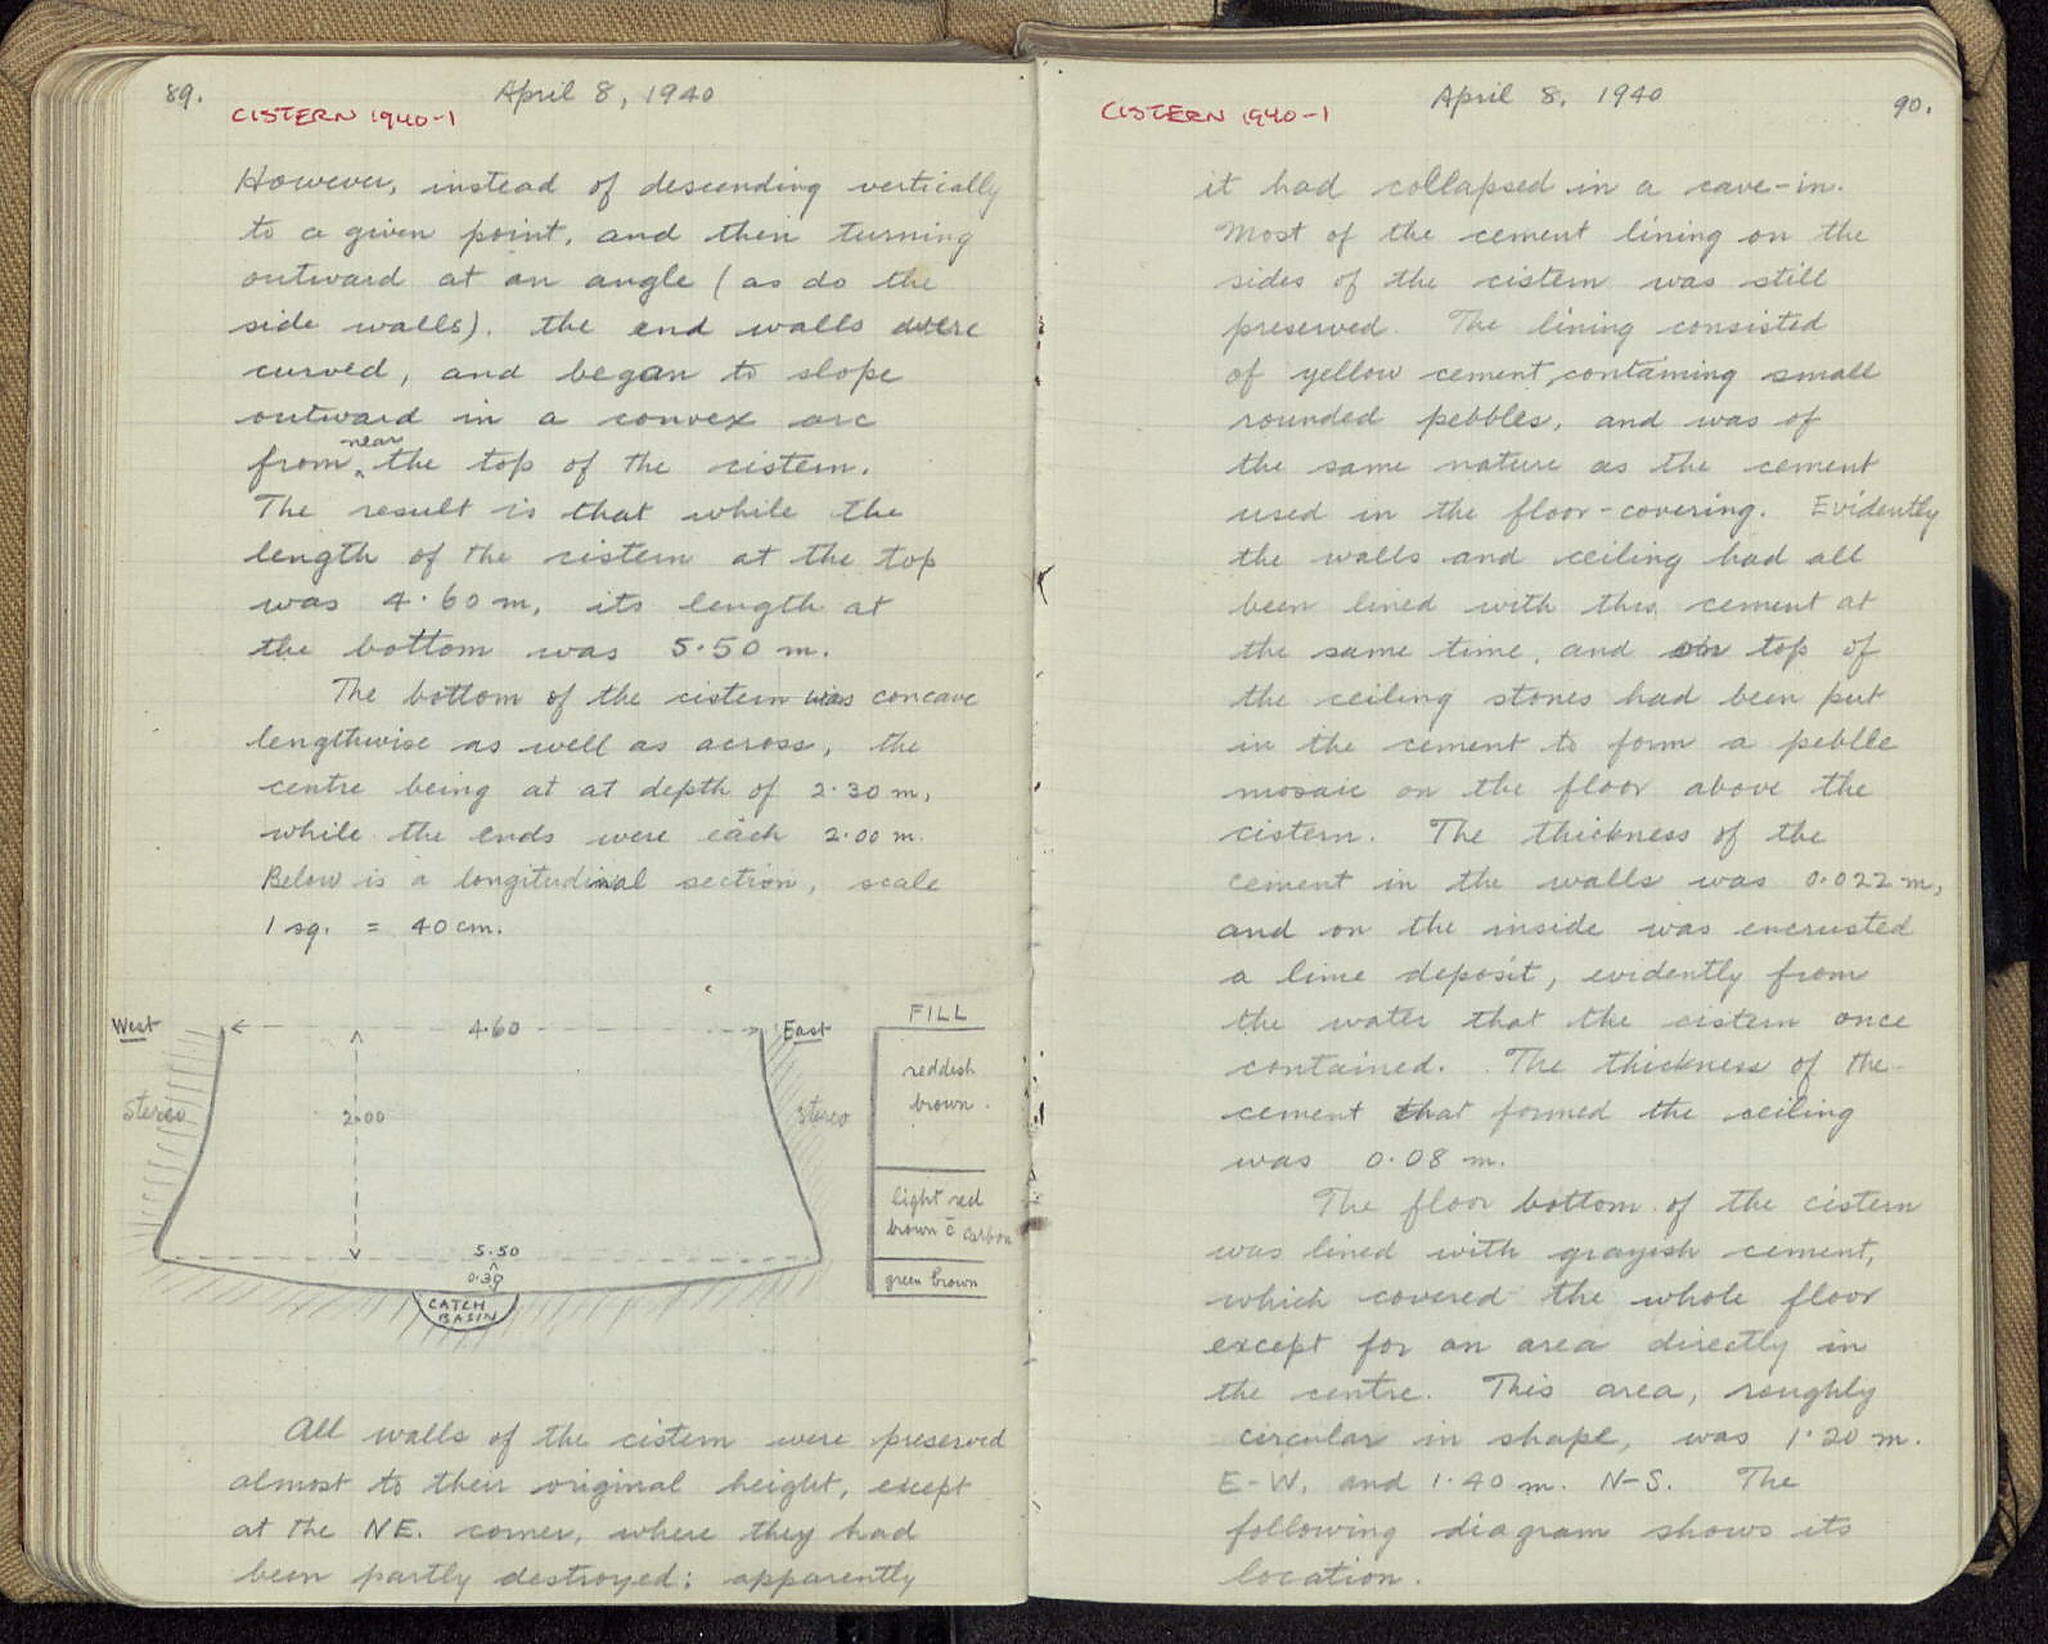 89.
April 8, 1940
CISTERN 1940-1
However, instead of descending vertically
to a given point, and then turning
outward at an angle (as do the
side walls). the end walls were
curved, and began to slope
outward in a convex arc
near
from the top of the cistern.
The result is that while the
length of the cistern at the top
was 4.60 m, its length at
the bottom was 5.50 m.
The bottom of the cistern was concave
lengthwise as well as across, the
centre being at at depth of 2.30 m,
while the ends were each 2.00 m.
Below is a longitudinal section, scale
1 sq. = 40 cm.
West
4.60
East
Stereo
2.00
stereo
5.50
0.30
CATCH
BASIN
FILL
reddish
brown.
light red
brown c̄ carbon
green brown
All walls of the cistern were preserved
almost to their original height, except
at the NE. corner, where they had
been partly destroyed; apparently
April 8, 1940
90.
CISTERN 1940-1
it had collapsed in a cave-in.
Most of the cement lining on the
sides of the cistern was still
preserved. The lining consisted
of yellow cement, containing small
rounded pebbles, and was of
the same nature as the cement
used in the floor-covering. Evidently
the walls and ceiling had all
been lined with this cement at
the same time, and on top of
the ceiling stones had been put
in the cement to form a pebble
mosaic on the floor above the
cistern. The thickness of the
cement in the walls was 0.022 m,
and on the inside was encrusted
a lime deposit, evidently from
the water that the cistern once
contained. The thickness of the
cement that formed the ceiling
was 0.08 m.
The floor bottom of the cistern
was lined with grayish cement,
which covered the whole floor
except for an area directly in
the centre. This area, roughly
circular in shape, was 1.20 m.
E-W. and 1.40 m. N-S. The
following diagram shows its
location.